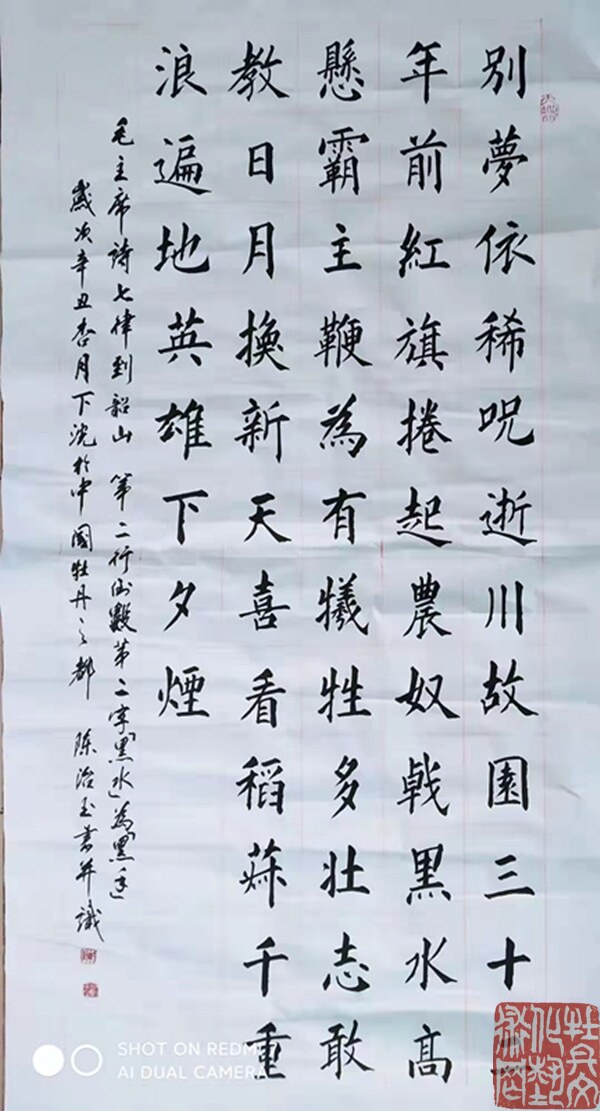 別夢依稀呪逝川故園三十
年前紅旗捲起農奴戟黑水高
懸霸主鞭為有犧牲多壮志敢
教日月換新天喜看稻菽千重
浪遍地英雄下夕煙
毛主席詩七律到韶山 第二行倒數第二字「黑水」為「黑手」
歲次辛丑杏月下浣於中國牡丹之都 陈治玉書并識
SHOT ON REDMI
AI DUAL CAMERA